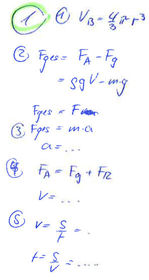 1 ① V_B = 4/3 π r³
② Fges = F_A - F_g
= ρgV - m·g
Fges = F
③ Fges = m·a
a = ...
④ F_A = F_g + F_R
v = ...
⑤ v = s/t = ..
t = s/v = ....